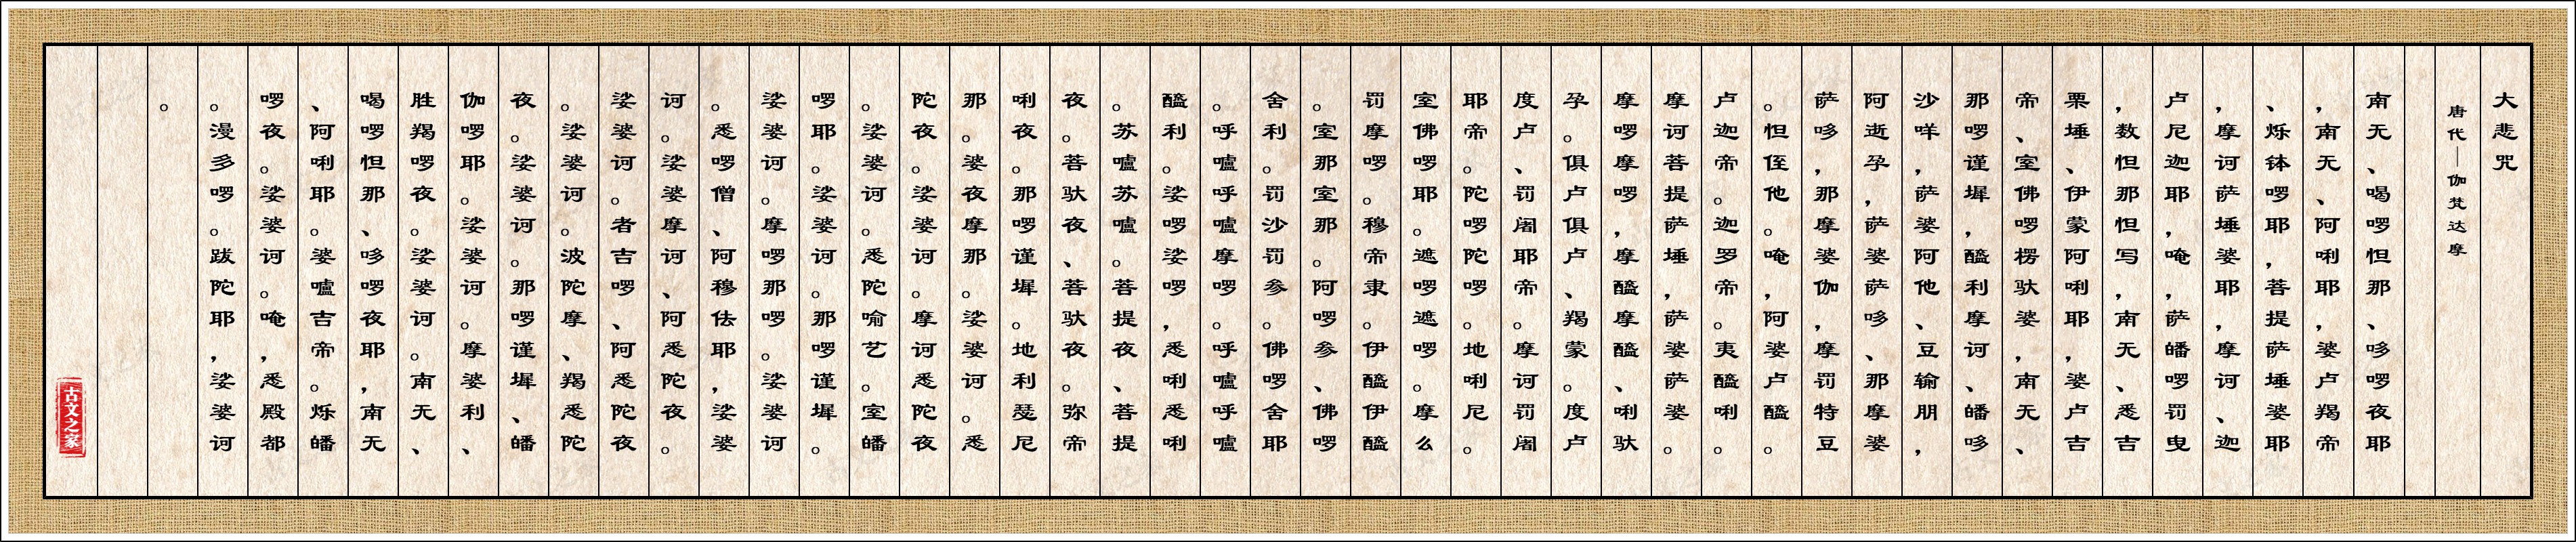 大悲咒
唐代—伽梵达摩
南无、喝啰怛那、哆啰夜耶
，南无、阿唎耶，婆卢羯帝
、烁钵啰耶，菩提萨埵婆耶
，摩诃萨埵婆耶，摩诃、迦
卢尼迦耶，唵，萨皤啰罚曳
，数怛那怛写，南无、悉吉
栗埵、伊蒙阿唎耶，婆卢吉
帝、室佛啰楞驮婆，南无、
那啰谨墀，醯利摩诃、皤哆
沙咩，萨婆阿他、豆输朋，
阿逝孕，萨婆萨哆、那摩婆
萨哆，那摩婆伽，摩罚特豆
。怛侄他。唵，阿婆卢醯。
卢迦帝。迦罗帝。夷醯唎。
摩诃菩提萨埵，萨婆萨婆。
摩啰摩啰，摩醯摩醯、唎驮
孕。俱卢俱卢、羯蒙。度卢
度卢、罚阇耶帝。摩诃罚阇
耶帝。陀啰陀啰。地唎尼。
室佛啰耶。遮啰遮啰。摩么
罚摩啰。穆帝隶。伊醯伊醯
。室那室那。阿啰参、佛啰
舍利。罚沙罚参。佛啰舍耶
。呼嚧呼嚧摩啰。呼嚧呼嚧
醯利。娑啰娑啰，悉唎悉唎
。苏嚧苏嚧。菩提夜、菩提
夜。菩驮夜、菩驮夜。弥帝
唎夜。那啰谨墀。地利瑟尼
那。婆夜摩那。娑婆诃。悉
陀夜。娑婆诃。摩诃悉陀夜
。娑婆诃。悉陀喻艺。室皤
啰耶。娑婆诃。那啰谨墀。
娑婆诃。摩啰那啰。娑婆诃
。悉啰僧、阿穆佉耶，娑婆
诃。娑婆摩诃、阿悉陀夜。
娑婆诃。者吉啰、阿悉陀夜
。娑婆诃。波陀摩、羯悉陀
夜。娑婆诃。那啰谨墀、皤
伽啰耶。娑婆诃。摩婆利、
胜羯啰夜。娑婆诃。南无、
喝啰怛那、哆啰夜耶，南无
、阿唎耶。婆嚧吉帝。烁皤
啰夜。娑婆诃。唵，悉殿都
。漫多啰。跋陀耶，娑婆诃
。
古文之家